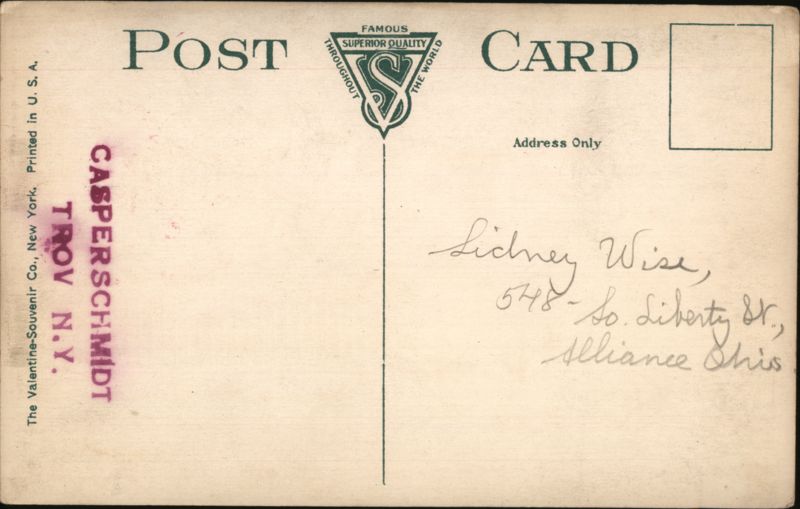 POST CARD
FAMOUS
THROUGHOUT THE WORLD
SUPERIOR QUALITY
VS
Address Only
The Valentine-Souvenir Co., New York. Printed in U. S. A.
CASPERSCHMIDT
TROY N.Y.
Sidney Wise,
548- So. Liberty St.,
Alliance Ohio